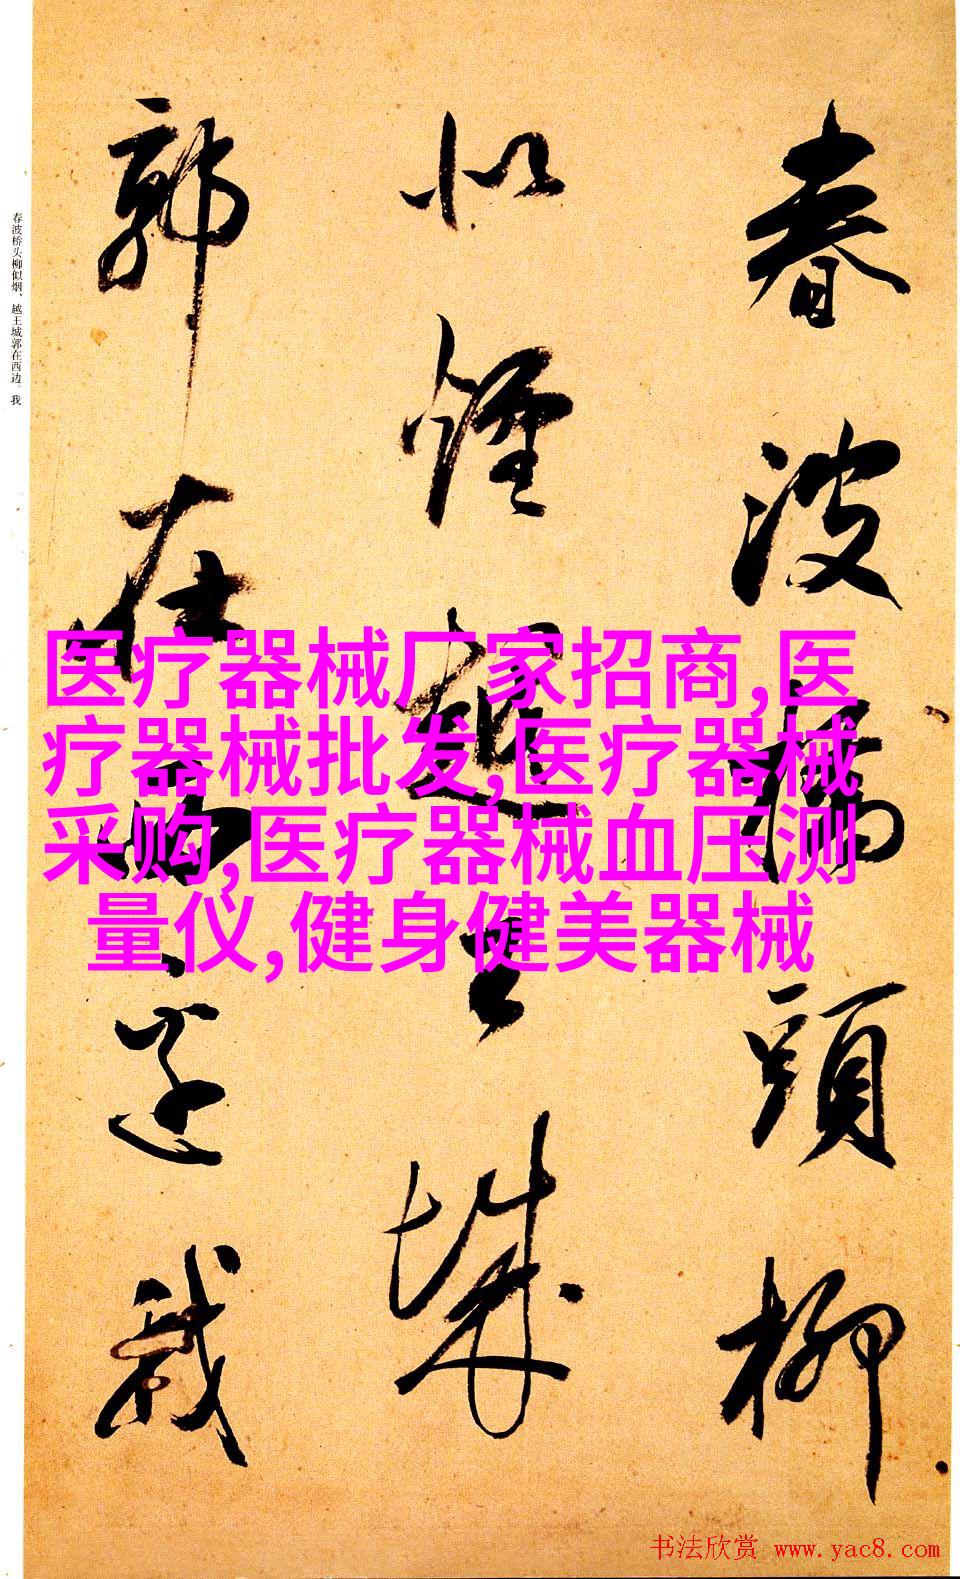 春波橋頭柳
似煙越王城
郭在西邊我
春波桥头柳似烟、越王城郭在西边。我
医疗器械厂家招商,医
疗器械批发,医疗器械
采购,医疗器械血压测
量仪,健身健美器械
书法欣赏 www.yac8.com